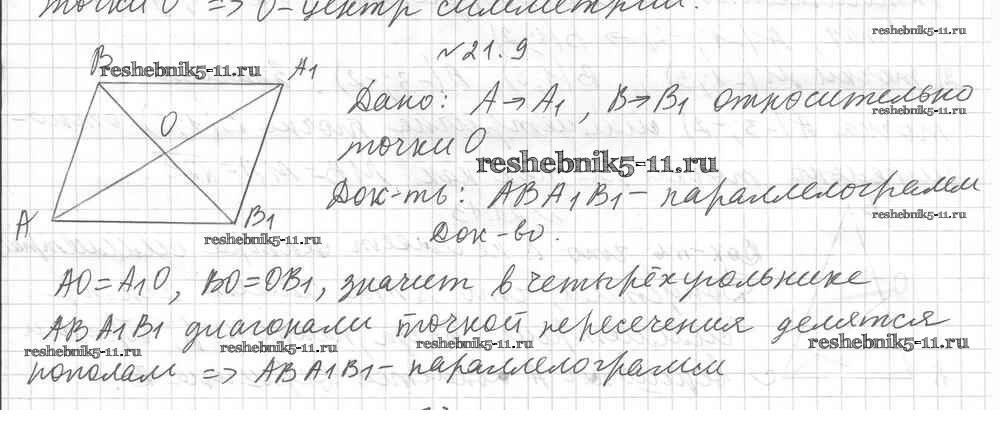 точки O => O - центр симметрии.
reshebnik5-11.ru
№21.9
B
reshebnik5-11.ru
A1
O
A
B1
reshebnik5-11.ru
Дано: A → A1, B → B1 относительно
reshebnik5-11.ru
точки O
reshebnik5-11.ru
Док-ть: ABA1B1 - параллелограмм
reshebnik5-11.ru
Док-во.
AO = A1O, BO = OB1, значит в четырёхугольнике
ABA1B1 диагонали точкой пересечения делятся
reshebnik5-11.ru
reshebnik5-11.ru
reshebnik5-11.ru
reshebnik5-11.ru
пополам => ABA1B1 - параллелограмм